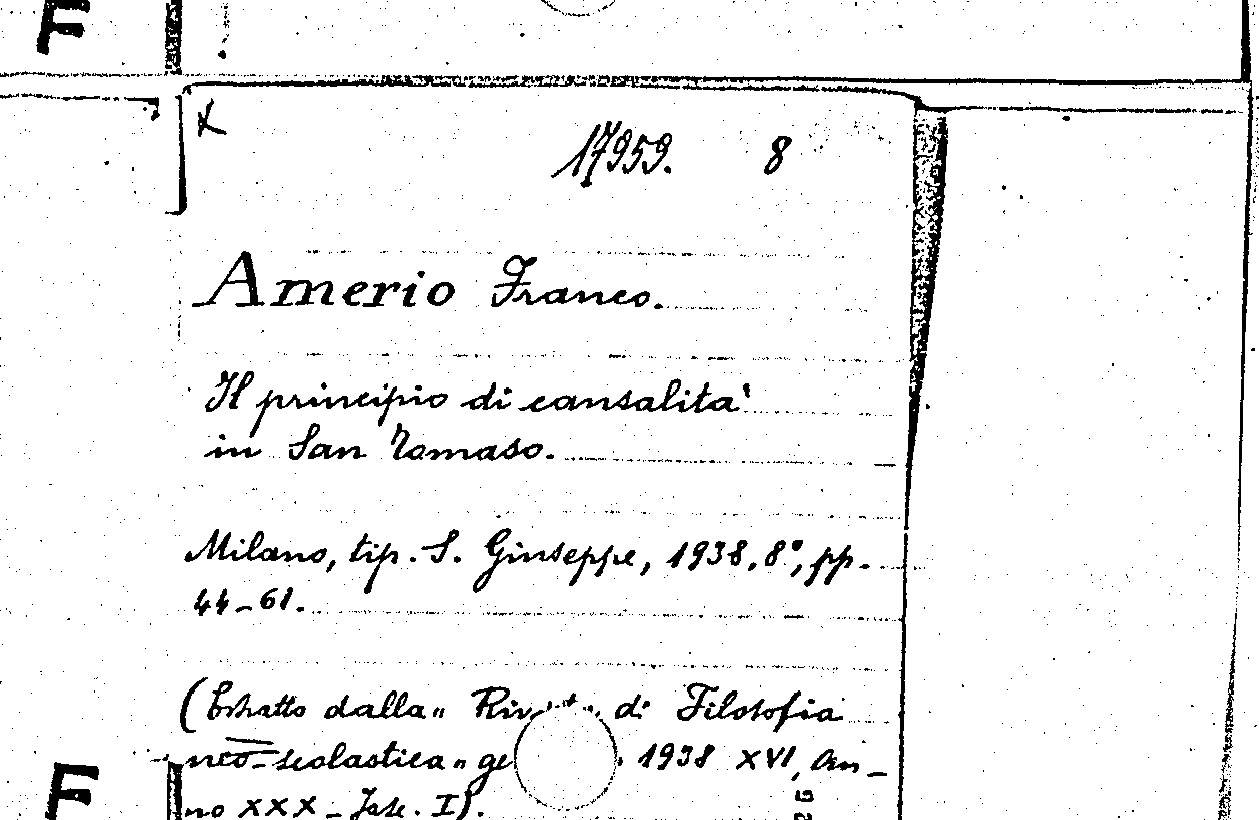 F
X
17959. 8
Amerio Franco.
Il principio di causalita'
in San Tomaso.
Milano, tip. S. Giuseppe, 1938. 8°, pp.
44-61.
(Estratto dalla " Rivista di Filosofia
neo-scolastica " 1938 XVI, an-
F
no XXX - Fasc. I).